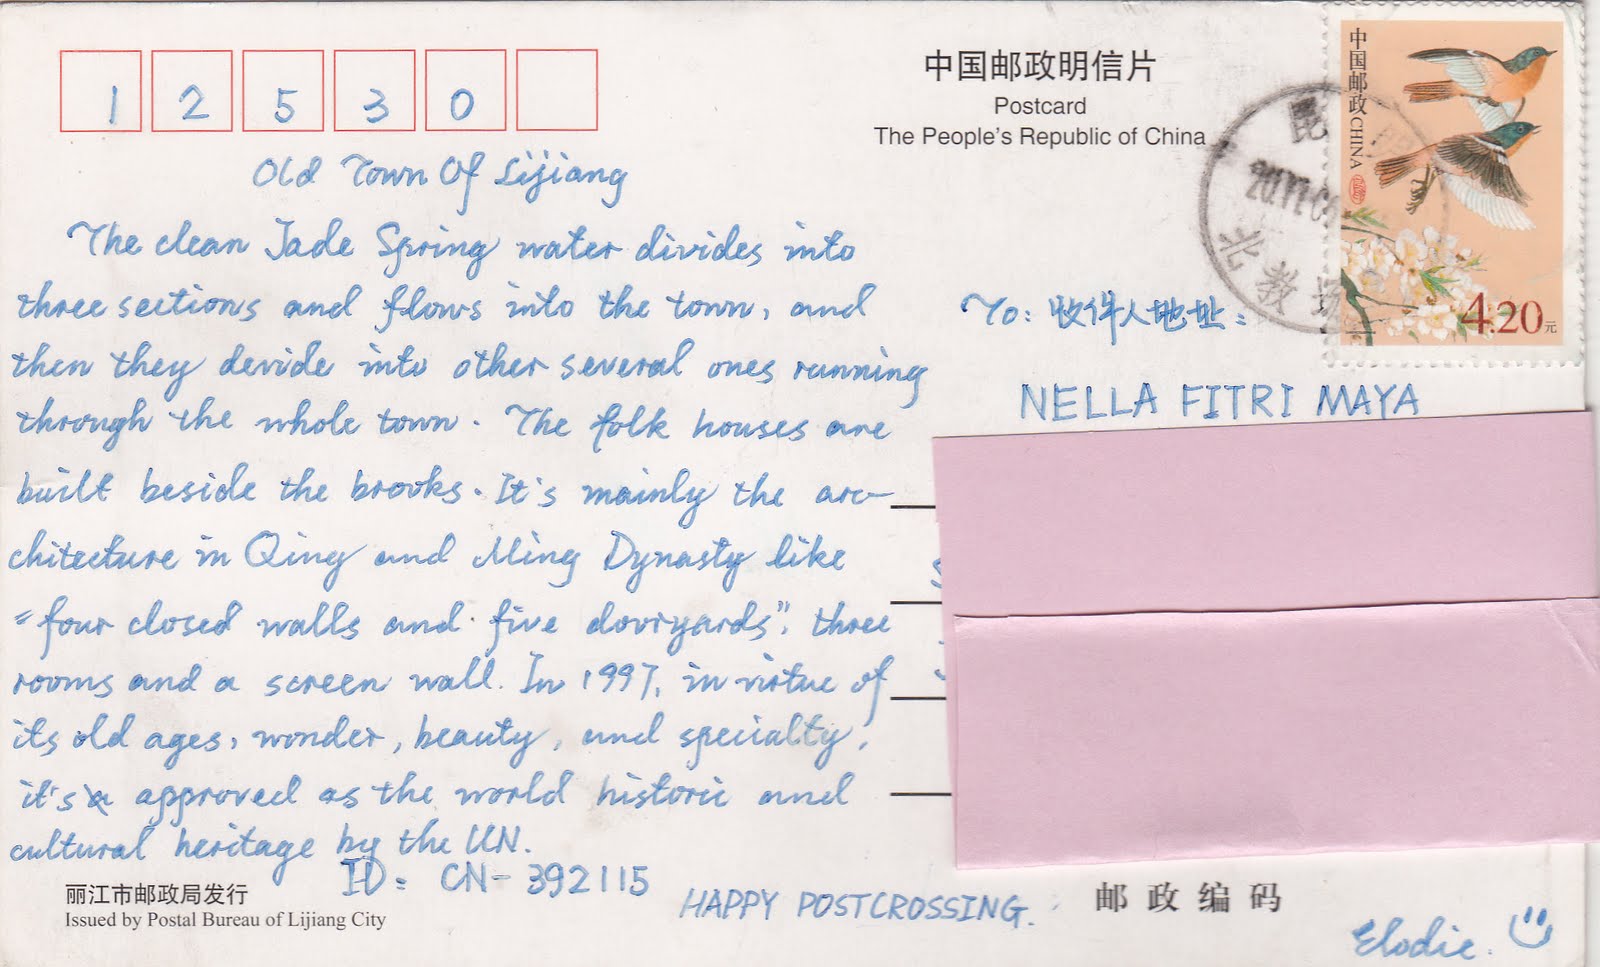 1 2 5 3 0
中国邮政明信片
Postcard
The People's Republic of China
中国邮政CHINA
4.20元
昆
2011.0
北教场
Old Town Of Lijiang
The clean Jade Spring water divides into
three sections and flows into the town, and
then they devide into other several ones running
through the whole town. The folk houses are
built beside the brooks. It's mainly the arc-
chitecture in Qing and Ming Dynasty like
"four closed walls and five dooryards", three
rooms and a screen wall. In 1997, in virtue of
its old ages, wonder, beauty, and specialty,
it's approved as the world historic and
cultural heritage by the UN.
ID: CN-392115
HAPPY POSTCROSSING.
To: 收件人地址:
NELLA FITRI MAYA
丽江市邮政局发行
Issued by Postal Bureau of Lijiang City
邮政编码
Elodie.